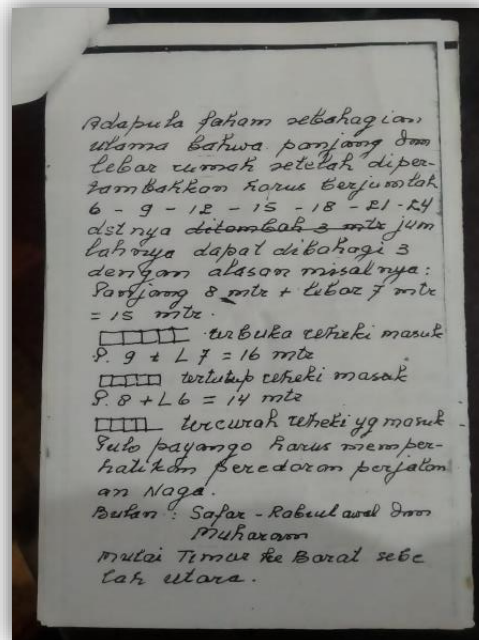 Adapula faham sebahagian
ulama bahwa panjang dan
lebar rumah setelah diper-
tambahkan harus berjumlah
6 - 9 - 12 - 15 - 18 - 21 - 24
dstnya ditambah 3 mtr jum
lahnya dapat dibahagi 3
dengan alasan misalnya:
Panjang 8 mtr + lebar 7 mtr
= 15 mtr.
terbuka reheki masuk
P. 9 + L 7 = 16 mtr
tertutup reheki masuk
P. 8 + L 6 = 14 mtr
tercurah reheki yg masuk
Pulo payango harus memper-
hatikan peredaran perjalan
an Naga.
Bulan : Safar - Rabiul awal dan
Muharam
Mulai Timur ke Barat sebe
lah utara.